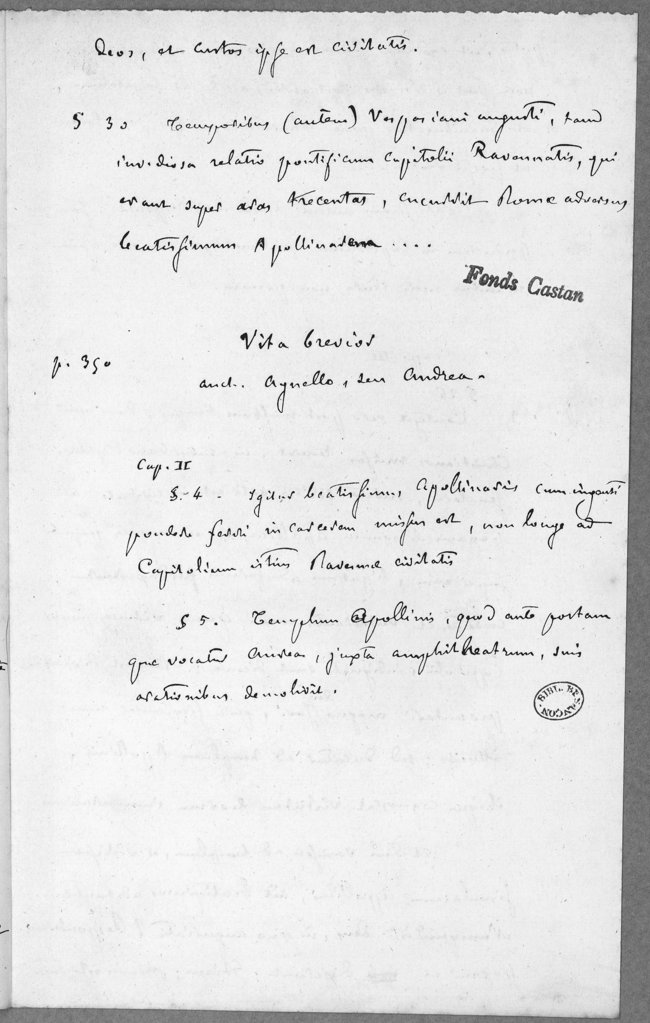 Deos, et custos ipse est civitatis.
§ 30 Temporibus (autem) Vespasiani augusti, tam
invidiosa relatio pontificum capitolii Ravennatis, qui
erant super aras trecentas, cucurrit Romæ adversus
beatissimum Apollinarem ....
Fonds Castan
Vita brevior
p. 350
auct. Agnello, seu Andrea.
Cap. II
§. 4. Igitur beatissimus Apollinaris cum ingenti
pondere ferri in carcerem missus est, non longe ad
Capitolium istius Ravennæ civitatis
§ 5. Templum Apollinis, quod ante portam
que vocatur aurea, juxta amphitheatrum, suis
orationibus demolivit.
BIBL. BESANÇON